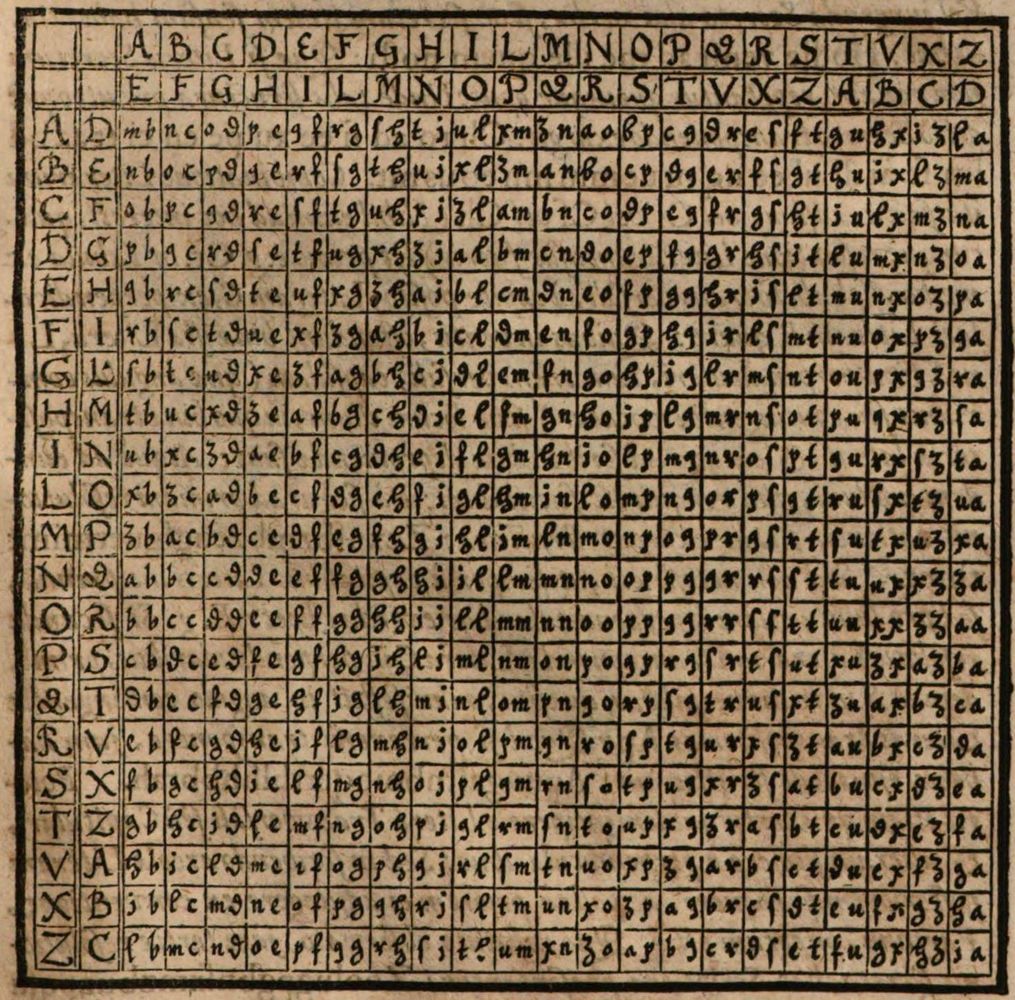 A B C D E F G H I L M N O P Q R S T V X Z
E F G H I L M N O P Q R S T V X Z A B C D
A D mb nc od pe qf rg ſh ti ul xm zn ao bp cq dr eſ ft gu hx iz la
B E nb oc pd qe rf ſg th ui xl zm an bo cp dq er fſ gt hu ix lz ma
C F ob pc qd re ſf tg uh xi zl am bn co dp eq fr gſ ht iu lx mz na
D G pb qc rd ſe tf ug xh zi al bm cn do ep fq gr hſ it lu mx nz oa
E H qb rc ſd te uf xg zh ai bl cm dn eo fp gq hr iſ lt mu nx oz pa
F I rb ſc td ue xf zg ah bi cl dm en fo gp hq ir lſ mt nu ox pz qa
G L ſb tc ud xe zf ag bh ci dl em fn go hp iq lr mſ nt ou px qz ra
H M tb uc xd ze af bg ch di el fm gn ho ip lq mr nſ ot pu qx rz ſa
I N ub xc zd ae bf cg dh ei fl gm hn io lp mq nr oſ pt qu rx ſz ta
L O xb zc ad be cf dg eh fi gl hm in lo mp nq or pſ qt ru ſx tz ua
M P zb ac bd ce df eg fh gi hl im ln mo np oq pr qſ rt ſu tx uz xa
N Q ab bc cd de ef fg gh hi il lm mn no op pq qr rſ ſt tu ux xz za
O R bb cc dd ee ff gg hh ii ll mm nn oo pp qq rr ſſ tt uu xx zz aa
P S cb dc ed fe gf hg ih li ml nm on po qp rq ſr tſ ut xu zx az ba
Q T db ec fd ge hf ig lh mi nl om pn qo rp ſq tr uſ xt zu ax bz ca
R V eb fc gd he if lg mh ni ol pm qn ro ſp tq ur xſ zt au bx cz da
S X fb gc hd ie lf mg nh oi pl qm rn ſo tp uq xr zſ at bu cx dz ea
T Z gb hc id le mf ng oh pi ql rm ſn to up xq zr aſ bt cu dx ez fa
V A hb ic ld me nf og ph qi rl ſm tn uo xp zq ar bſ ct du ex fz ga
X B ib lc md ne of pg qh ri ſl tm un xo zp aq br cſ dt eu fx gz ha
Z C lb mc nd oe pf qg rh ſi tl um xn zo ap bq cr dſ et fu gx hz ia